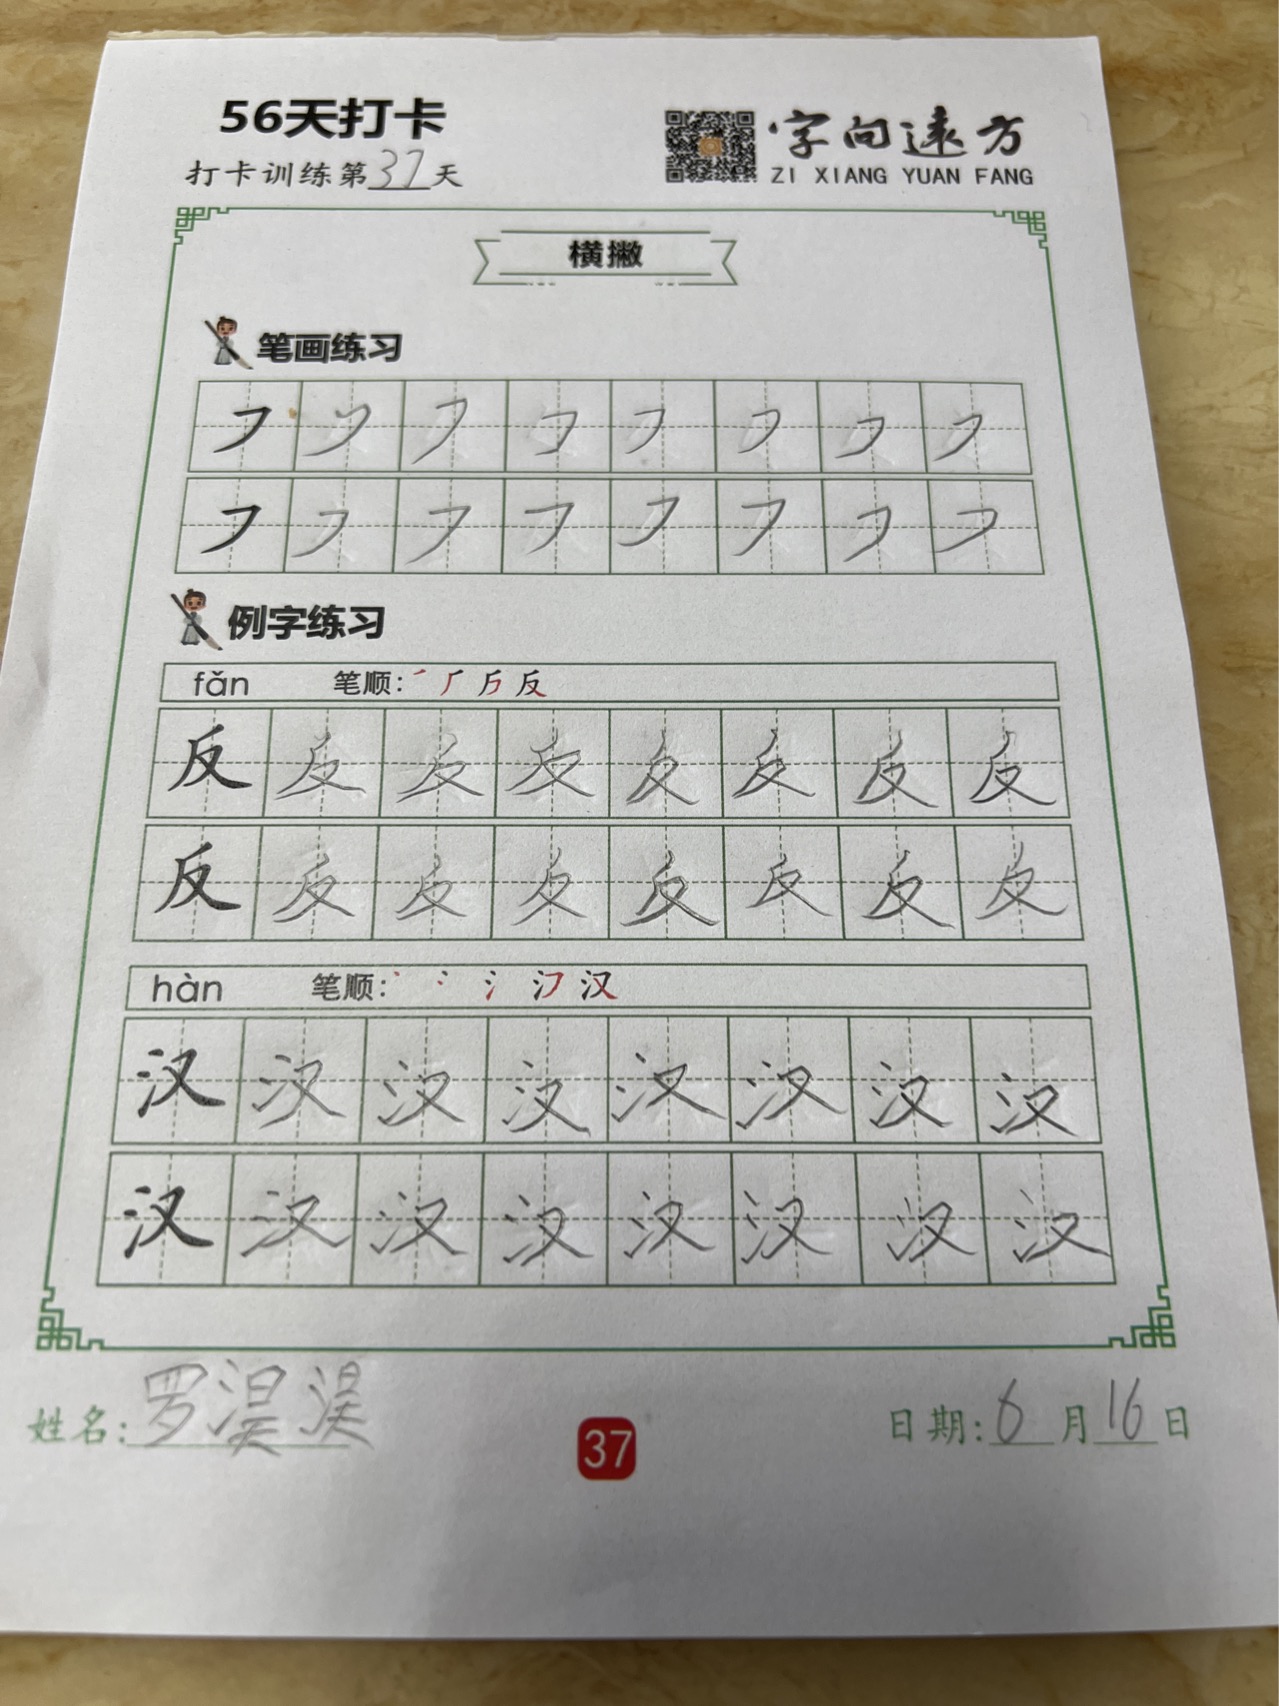 56天打卡
打卡训练第37天
字向远方
ZI XIANG YUAN FANG
横撇
笔画练习
㇇ ㇇ ㇇ ㇇ ㇇ ㇇ ㇇ ㇇
㇇ ㇇ ㇇ ㇇ ㇇ ㇇ ㇇ ㇇
例字练习
fǎn 笔顺: 反
反 反 反 反 反 反 反 反
反 反 反 反 反 反 反 反
hàn 笔顺: 汉
汉 汉 汉 汉 汉 汉 汉 汉
汉 汉 汉 汉 汉 汉 汉 汉
姓名: 罗淏淏
37
日期: 6月16日